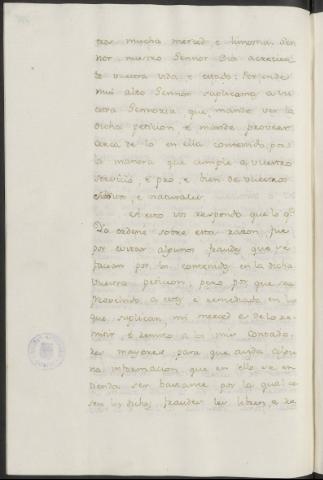 tros mucha merced, e limosna. Sen
nor nuestro Sennor Dios acreciente
la vuestra vida e estado: Por ende
mui alto Sennor suplicamos a vu
estra Sennoria, que, mande ver la
dicha peticion e mande proveer
cerca de lo en ella contenido, por
la manera que cumple a vuestro
servicio, e pro, e bien de vuestros
subditos, e naturales.
A esto vos respondo que lo q.e
Yo ordené sobre esta razon, fue
por evitar algunos fraudes que se
facian por lo contenido en la dicha
vuestra peticion, pero por que sea
proveido a esto, e remediado en lo
que suplican, mi merced es de lo re
mitir, e remito a los mis Contado
res mayores para que ayida alguna
informacion, que en ello se en
tienda ser bastante por la qual ce
sen los dichos fraudes los libren, e re